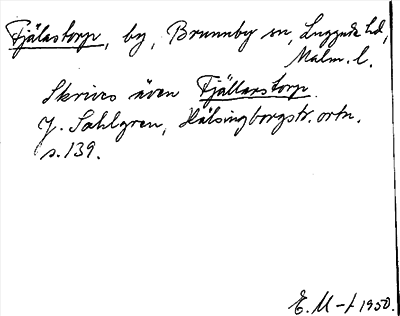 Fjälastorp, by, Brunnby sn, Luggude hd,
Malm. l.
Skrives även Fjällarstorp.
J. Sahlgren, Hälsingborgstr. ortn.
s. 139.
E. M-t 1950.